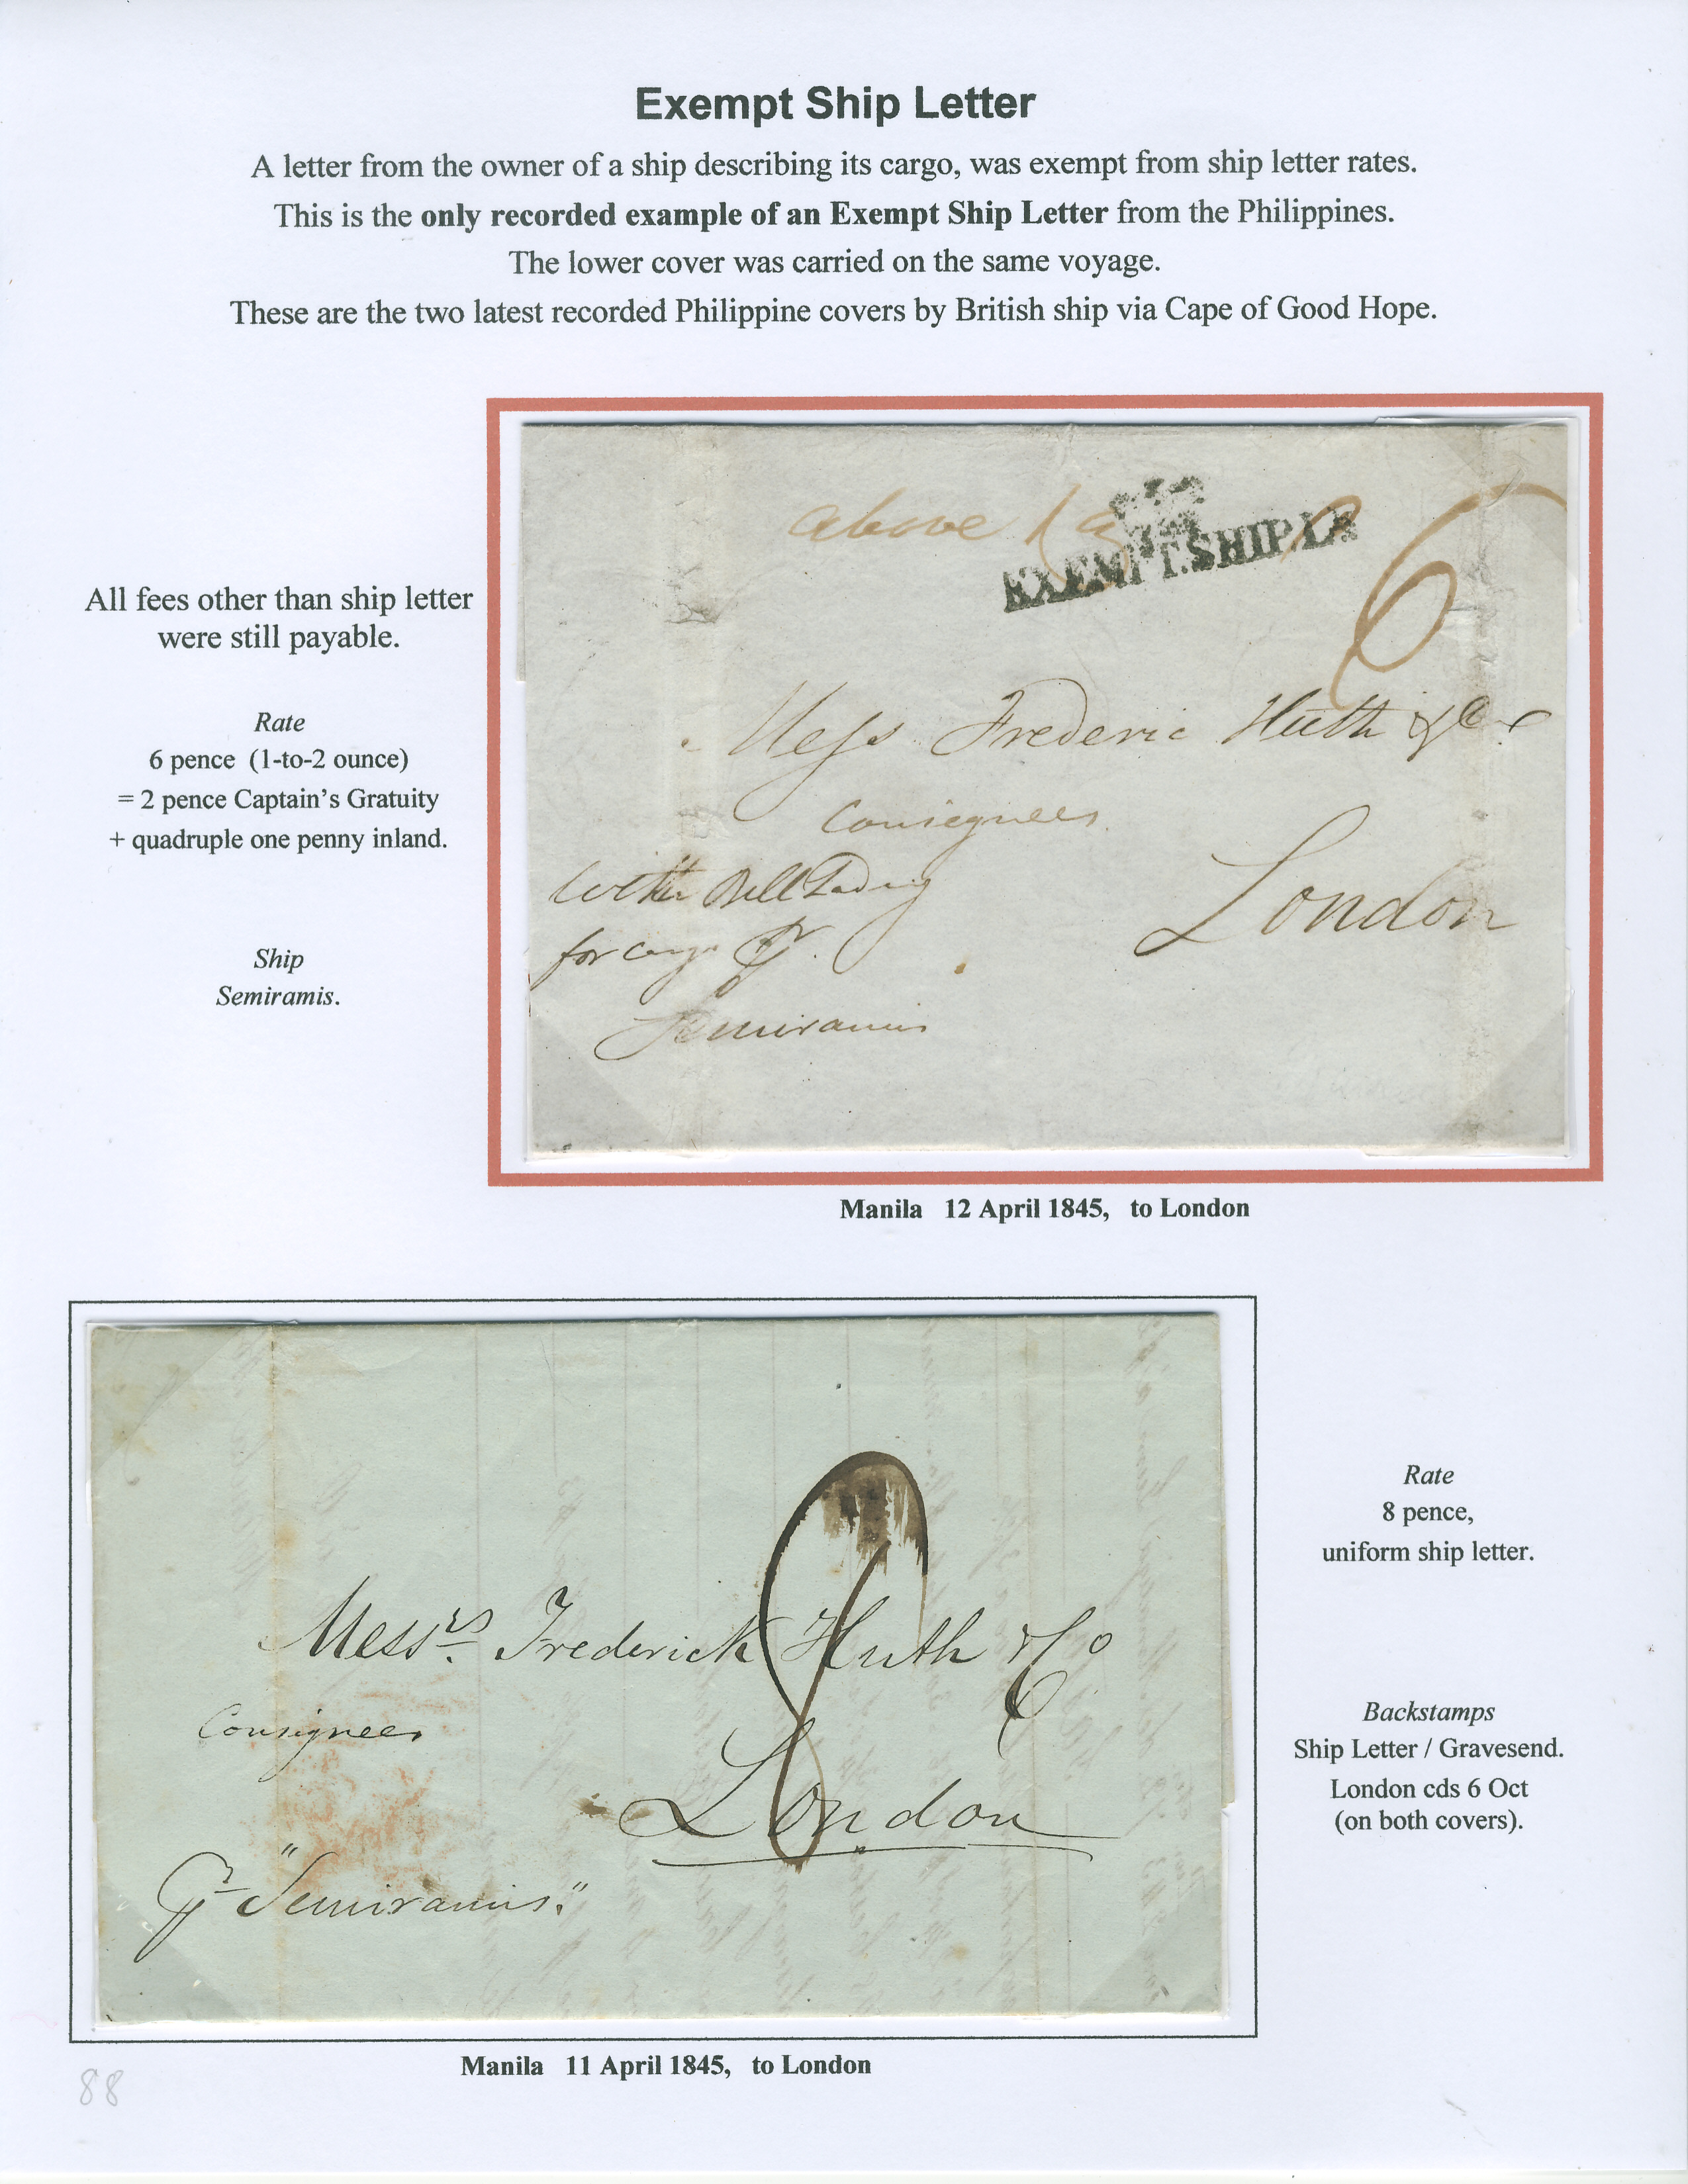 Exempt Ship Letter
A letter from the owner of a ship describing its cargo, was exempt from ship letter rates.
This is the only recorded example of an Exempt Ship Letter from the Philippines.
The lower cover was carried on the same voyage.
These are the two latest recorded Philippine covers by British ship via Cape of Good Hope.
All fees other than ship letter
were still payable.
Rate
6 pence (1-to-2 ounce)
= 2 pence Captain's Gratuity
+ quadruple one penny inland.
Ship
Semiramis.
above 1
EXEMPT.SHIP.LR
6
Mess Frederic Huth & Co
Consignees
London
With Bill Lading
for cargo pr
Semiramis
Manila 12 April 1845, to London
8
Messrs. Frederick Huth & Co
Consignees
London
pr "Semiramis."
Rate
8 pence,
uniform ship letter.
Backstamps
Ship Letter / Gravesend.
London cds 6 Oct
(on both covers).
Manila 11 April 1845, to London
88